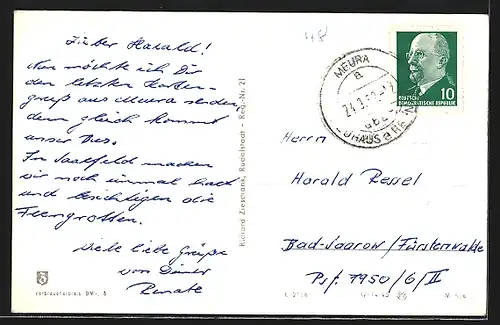 48
Lieber Harald!
Nun möchte ich Dir
den letzten Karten-
gruß aus Meura senden,
denn gleich kommt
unser Bus.
In Saalfeld machen
wir noch einmal halt
und besichtigen die
Feengrotten.
Viele liebe Grüße
von Deiner
Renate
Verbraucherpreis DM
Richard Zieschank, Rudolstadt - Reg.-Nr. 21
MEURA
a
10
DEUTSCHE
DEMOKRATISCHE REPUBLIK
Herrn
Harald Ressel
Bad-Saarow/Fürstenwalde
Psf. 7950/6/II